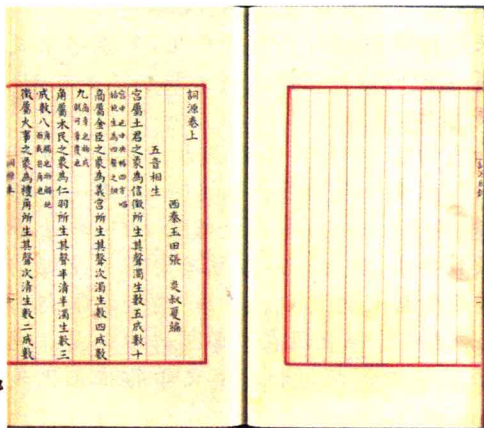 詞源卷上
西秦玉田張 炎叔夏編
五音相生
宮屬土君之象為信徵所生其聲濁生數五成數十
宮中也居中央暢四方唱
始施生為四聲之綱
商屬金臣之象為義宮所生其聲次濁生數四成數
九
角屬木民之象為仁羽所生其聲半清半濁生數三
成數八
徵屬火事之象為禮角所生其聲次清生數二成數